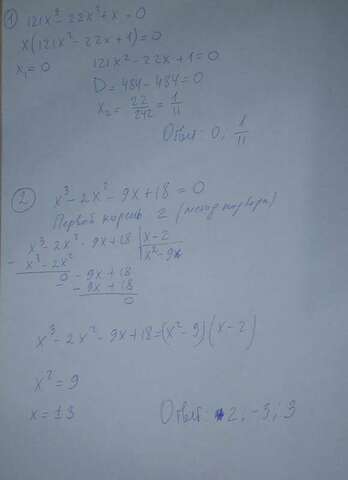 1) 121x³-22x²+x=0
x(121x²-22x+1)=0
x₁=0 121x²-22x+1=0
D=484-484=0
x₂=22/242=1/11
Ответ: 0, 1/11
2) x³-2x²-9x+18=0
Первой корень 2 (метод подбора)
x³-2x²-9x+18 | x-2
- x³-2x² x²-9
0 -9x+18
- -9x+18
0
x³-2x²-9x+18=(x²-9)(x-2)
x²=9
x=±3 Ответ: 2; -3; 3